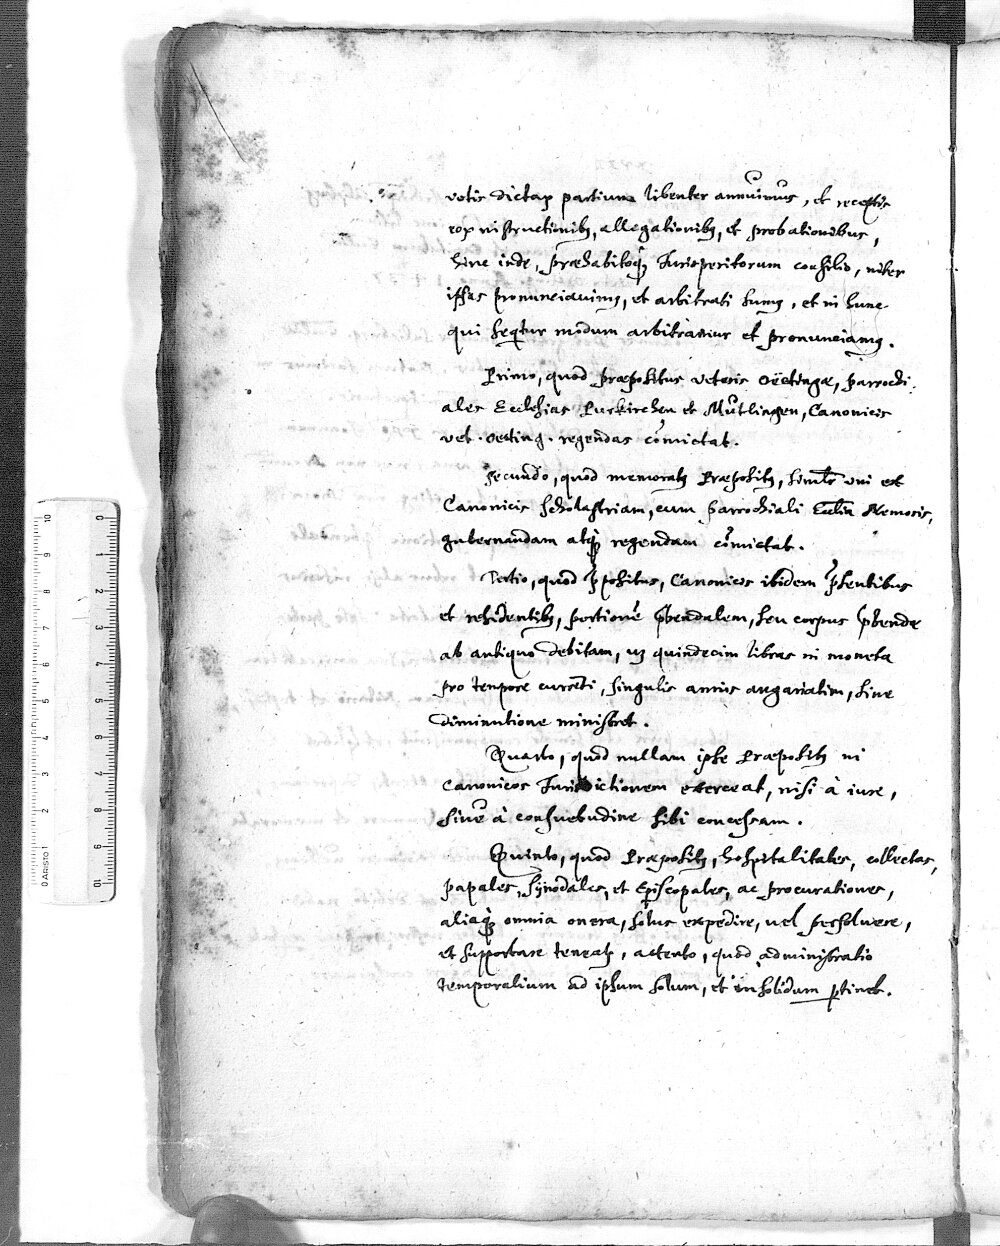 votis dictaꝝ partium libenter annuimus, et receptis
eoꝝ instructionibꝫ, allegationibꝫ, et probationibus,
hinc inde, præhabitoqꝫ Jurisperitorum consilio, inter
ipsas pronunciavimꝰ, et arbitrati sumꝰ, et in hunc
qui seqͥtur modum arbitramur et pronunciamꝰ.
Primo, quod præpositus veteris Oëtingæ, parrochi
ales Ecclesias Purkirchen et Mütlingen, Canonicis
vet. Oeting. regendas com̄ictat.
Secundo, quod memoratꝰ Præpositꝰ, simlr̄ uni ex
Canonicis scholastriam, cum parrochiali Eccl̄ia Nemoris,
gubernandam atqꝫ regendam com̄ictat.
Tertio, quod p̄positus, Canonicis ibidem p̄sentibus
et residentibꝫ, portionē p̄bendalem, seu corpus p̄bendæ
ab antiquo debitam, vꝫ quindecim libras in moneta
pro tempore currēti, singulis annis angariatim, sine
diminutione ministret.
Quarto, quod nullam ipse Præpositꝰ in
Canonicos Jurisdictionem exerceat, nisi à iure,
sive à consuetudine sibi concessam.
Quinto, quod Præpositꝰ, hospitalitates, collectas,
papales, synodales, et Episcopales, ac procurationes,
aliaqꝫ omnia onera, solus expedire, vel persolvere,
et supportare teneatꝰ, attento, quod administratio
temporalium ad ipsum solum, et in solidum ꝑtinet.